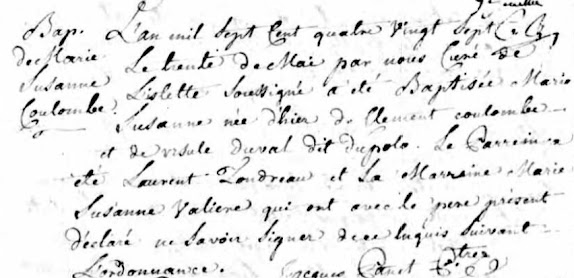 Bap. L'an mil Sept Cent quatre Vingt Sept
de Marie Le trente de Mai par nous Curé de
Susanne L'islette Soussigné a été Baptisée Marie
Coulombe. Susanne née d'hier de Clement coulombe
et de ursule duval dit dupolo. Le Parrein a
été Laurent Tondreau et La Marreine Marie
Susanne Valiere qui ont avec le pere présent
déclaré ne Savoir Signer de ce Enquis Suivant
L'ordonnance. Jacques Panet Ptre